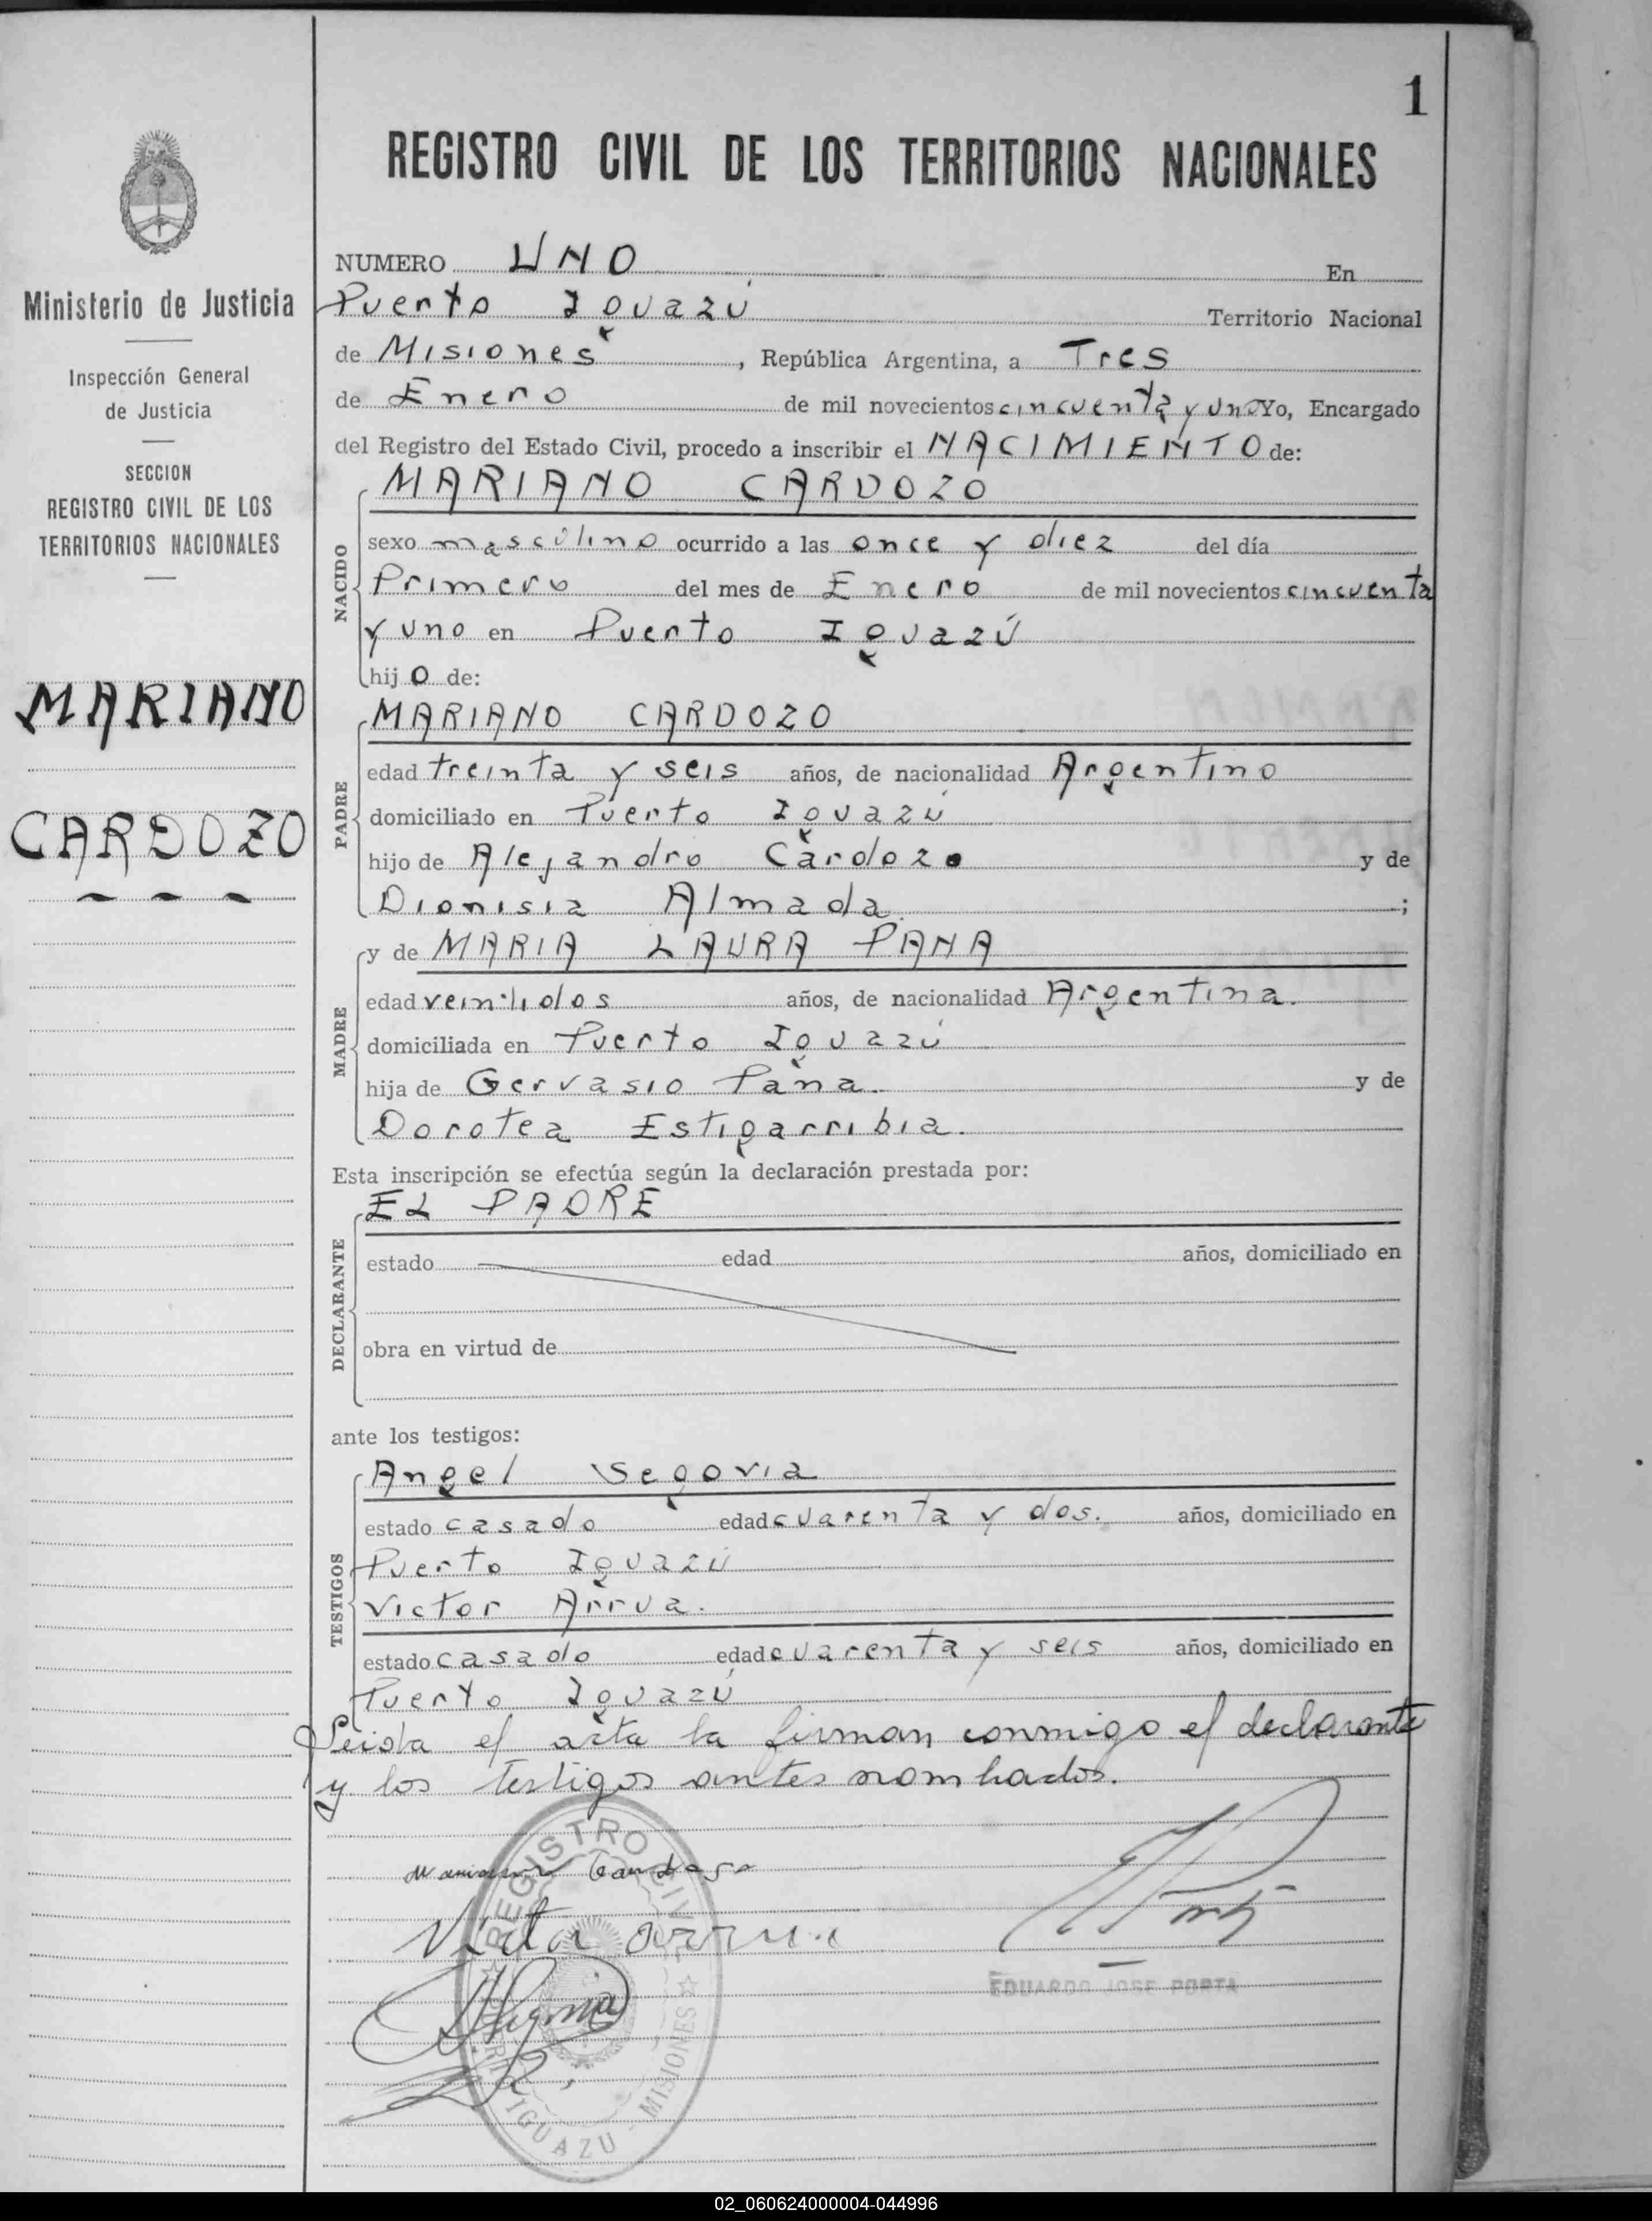 1
REGISTRO CIVIL DE LOS TERRITORIOS NACIONALES
Ministerio de Justicia
Inspección General
de Justicia
SECCION
REGISTRO CIVIL DE LOS
TERRITORIOS NACIONALES
MARIANO
CARDOZO
NUMERO UNO En
Puerto Iguazú Territorio Nacional
de Misiones, República Argentina, a Tres
de Enero de mil novecientos cincuenta y uno Yo, Encargado
del Registro del Estado Civil, procedo a inscribir el NACIMIENTO de:
MARIANO CARDOZO
NACIDO
sexo masculino ocurrido a las once y diez del día
Primero del mes de Enero de mil novecientos cincuenta
y uno en Puerto Iguazú
hijo de:
MARIANO CARDOZO
PADRE
edad treinta y seis años, de nacionalidad Argentino
domiciliado en Puerto Iguazú
hijo de Alejandro Cardozo y de
Dionisia Almada ;
y de MARIA LAURA PANA
MADRE
edad veintidos años, de nacionalidad Argentina.
domiciliada en Puerto Iguazú
hija de Gervasio Pana. y de
Dorotea Estigarribia.
Esta inscripción se efectúa según la declaración prestada por:
EL PADRE
DECLARANTE
estado edad años, domiciliado en
obra en virtud de
ante los testigos:
Angel Segovia
TESTIGOS
estado casado edad cuarenta y dos. años, domiciliado en
Puerto Iguazú
Victor Arrua.
estado casado edad cuarenta y seis años, domiciliado en
Puerto Iguazú
Leida el acta la firman conmigo el declarante
y los testigos antes nombados.
Mariano Cardozo
REGISTRO CIVIL
IGUAZU - MISIONES
EDUARDO JOSE PORTA
02_060624000004-044996